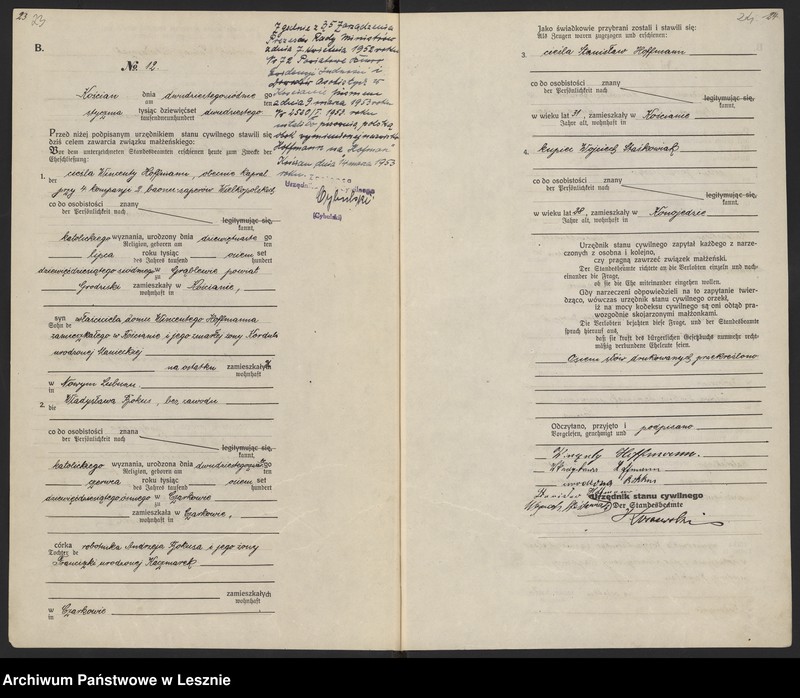 23
B.
No. 12.
Kościan dnia dwudziestego siódmego
am ten
stycznia tysiąc dziewięćset dwudziestego
tausendneunhundert
Przed niżej podpisanym urzędnikiem stanu cywilnego stawili się
dziś celem zawarcia związku małżeńskiego:
Vor dem unterzeichneten Standesbeamten erschienen heute zum Zwecke der
Eheschließung:
1. cieśla Wincenty Hoffmann, obecnie kapral
der
przy 4 kompanji 2. baonu saperów Wielkopolskich
co do osobistości znany
der Persönlichkeit nach
legitymując się,
kannt,
katolickiego wyznania, urodzony dnia dziewiątego
Religion, geboren am ten
lipca roku tysiąc osiem set
des Jahres tausend hundert
dziewięćdziesiątego siódmego w Grąblewie powiat
zu
Grodziski zamieszkały w Kościanie,
wohnhaft in
syn właściciela domu Wincentego Hoffmanna
Sohn de
zamieszkałego w Kościanie i jego zmarłej żony
urodzonej
na ostatku zamieszkałych
wohnhaft
w Nowym Lubuszu
in
2. Władysława Bokus, bez zawodu
die
co do osobistości znana
der Persönlichkeit nach
legitymując się,
kannt,
katolickiego wyznania, urodzona dnia
Religion, geboren am ten
czerwca roku tysiąc osiem set
des Jahres tausend hundert
dziewięćdziesiątego ósmego w Czarkowie
zu
zamieszkała w Czarkowie,
wohnhaft in
córka robotnika Andrzeja Bokusa i jego żony
Tochter de
Franciszki urodzonej Kaczmarek
zamieszkałych
wohnhaft
w Czarkowie
in
Zgodnie z § 5 zarządzenia
Prezesa Rady Ministrów
z dnia 7 kwietnia 1952 roku
Nr 72 Powiatowe Biuro
Ewidencji Ludności i
Dowodów Osobistych w
Kościanie pismem
z dnia 9 marca 1953 roku
ustaliło pisownię polską
obok wymienionego nazwiska
Hoffmann na "Hofman"
Kościan, dnia marca 1953
roku.
Cybulski
(Cybulski)
24
Jako świadkowie przybrani zostali i stawili się:
Als Zeugen waren zugezogen und erschienen:
3. cieśla Stanisław Hoffmann
co do osobistości znany
der Persönlichkeit nach
legitymując się,
kannt,
w wieku lat 31, zamieszkały w Kościanie
Jahre alt, wohnhaft in
4. kupiec Wojciech Staśkowiak
co do osobistości znany
der Persönlichkeit nach
legitymując się,
kannt,
w wieku lat 28, zamieszkały w Konojedzie
Jahre alt, wohnhaft in
Urzędnik stanu cywilnego zapytał każdego z narze-
czonych z osobna i kolejno,
czy pragną zawrzeć związek małżeński.
Der Standesbeamte richtete an die Verlobten einzeln und nach-
einander die Frage,
ob sie die Ehe miteinander eingehen wollen.
Gdy narzeczeni odpowiedzieli na to zapytanie twier-
dząco, wówczas urzędnik stanu cywilnego orzekł,
iż na mocy kodeksu cywilnego są oni odtąd pra-
wozgodnie skojarzonymi małżonkami.
Die Verlobten bejahten diese Frage, und der Standesbeamte
sprach hierauf aus,
daß sie kraft des bürgerlichen Gesetzbuchs nunmehr recht-
mäßig verbundene Eheleute seien.
Osiem słów drukowanych przekreślono
Odczytano, przyjęto i podpisano
Vorgelesen, genehmigt und
Wincenty Hoffmann.
Władysława Hoffmann
urodzona Bokus
Stanisław Hoffmann
Urzędnik stanu cywilnego
Der Standesbeamte
Archiwum Państwowe w Lesznie